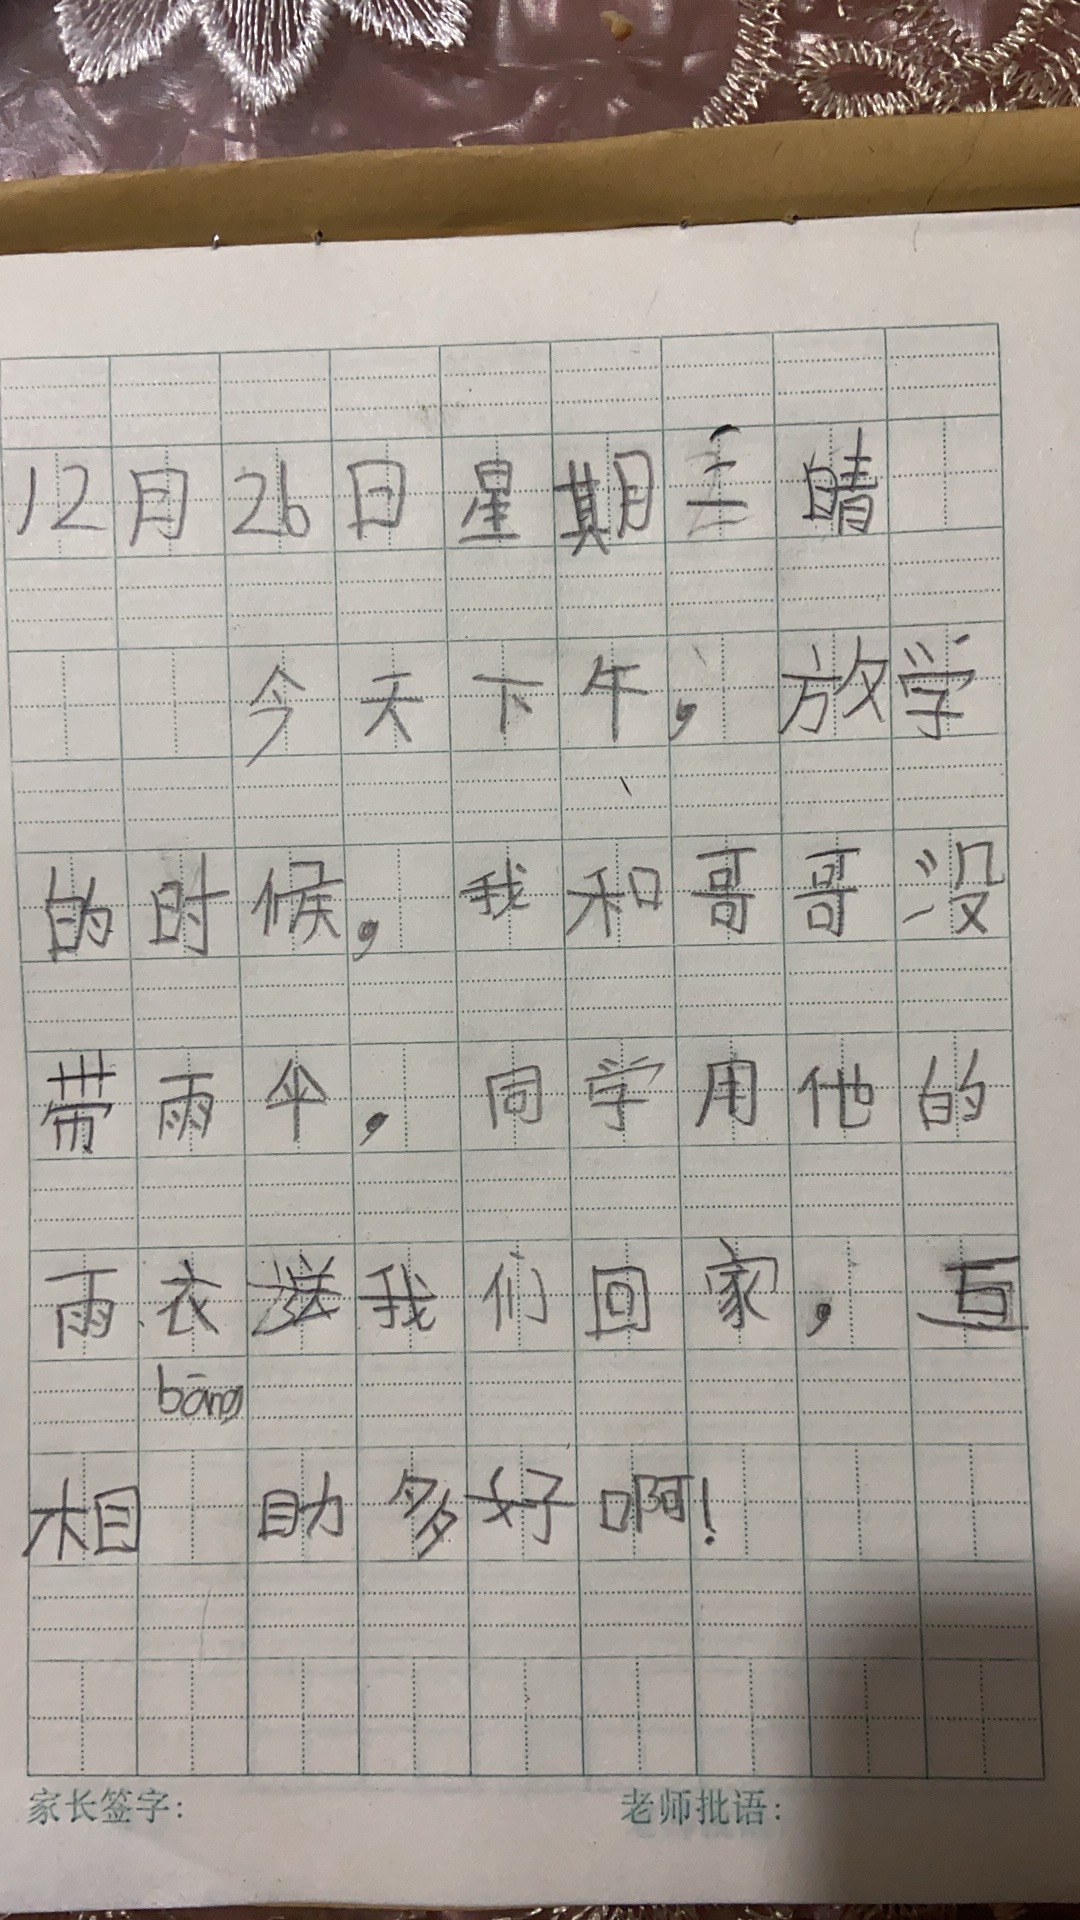 12月26日星期三晴
今天下午,放学
的时候,我和哥哥没
带雨伞,同学用他的
雨衣送我们回家,互
bāng
相 助多好啊!
家长签字: 老师批语: